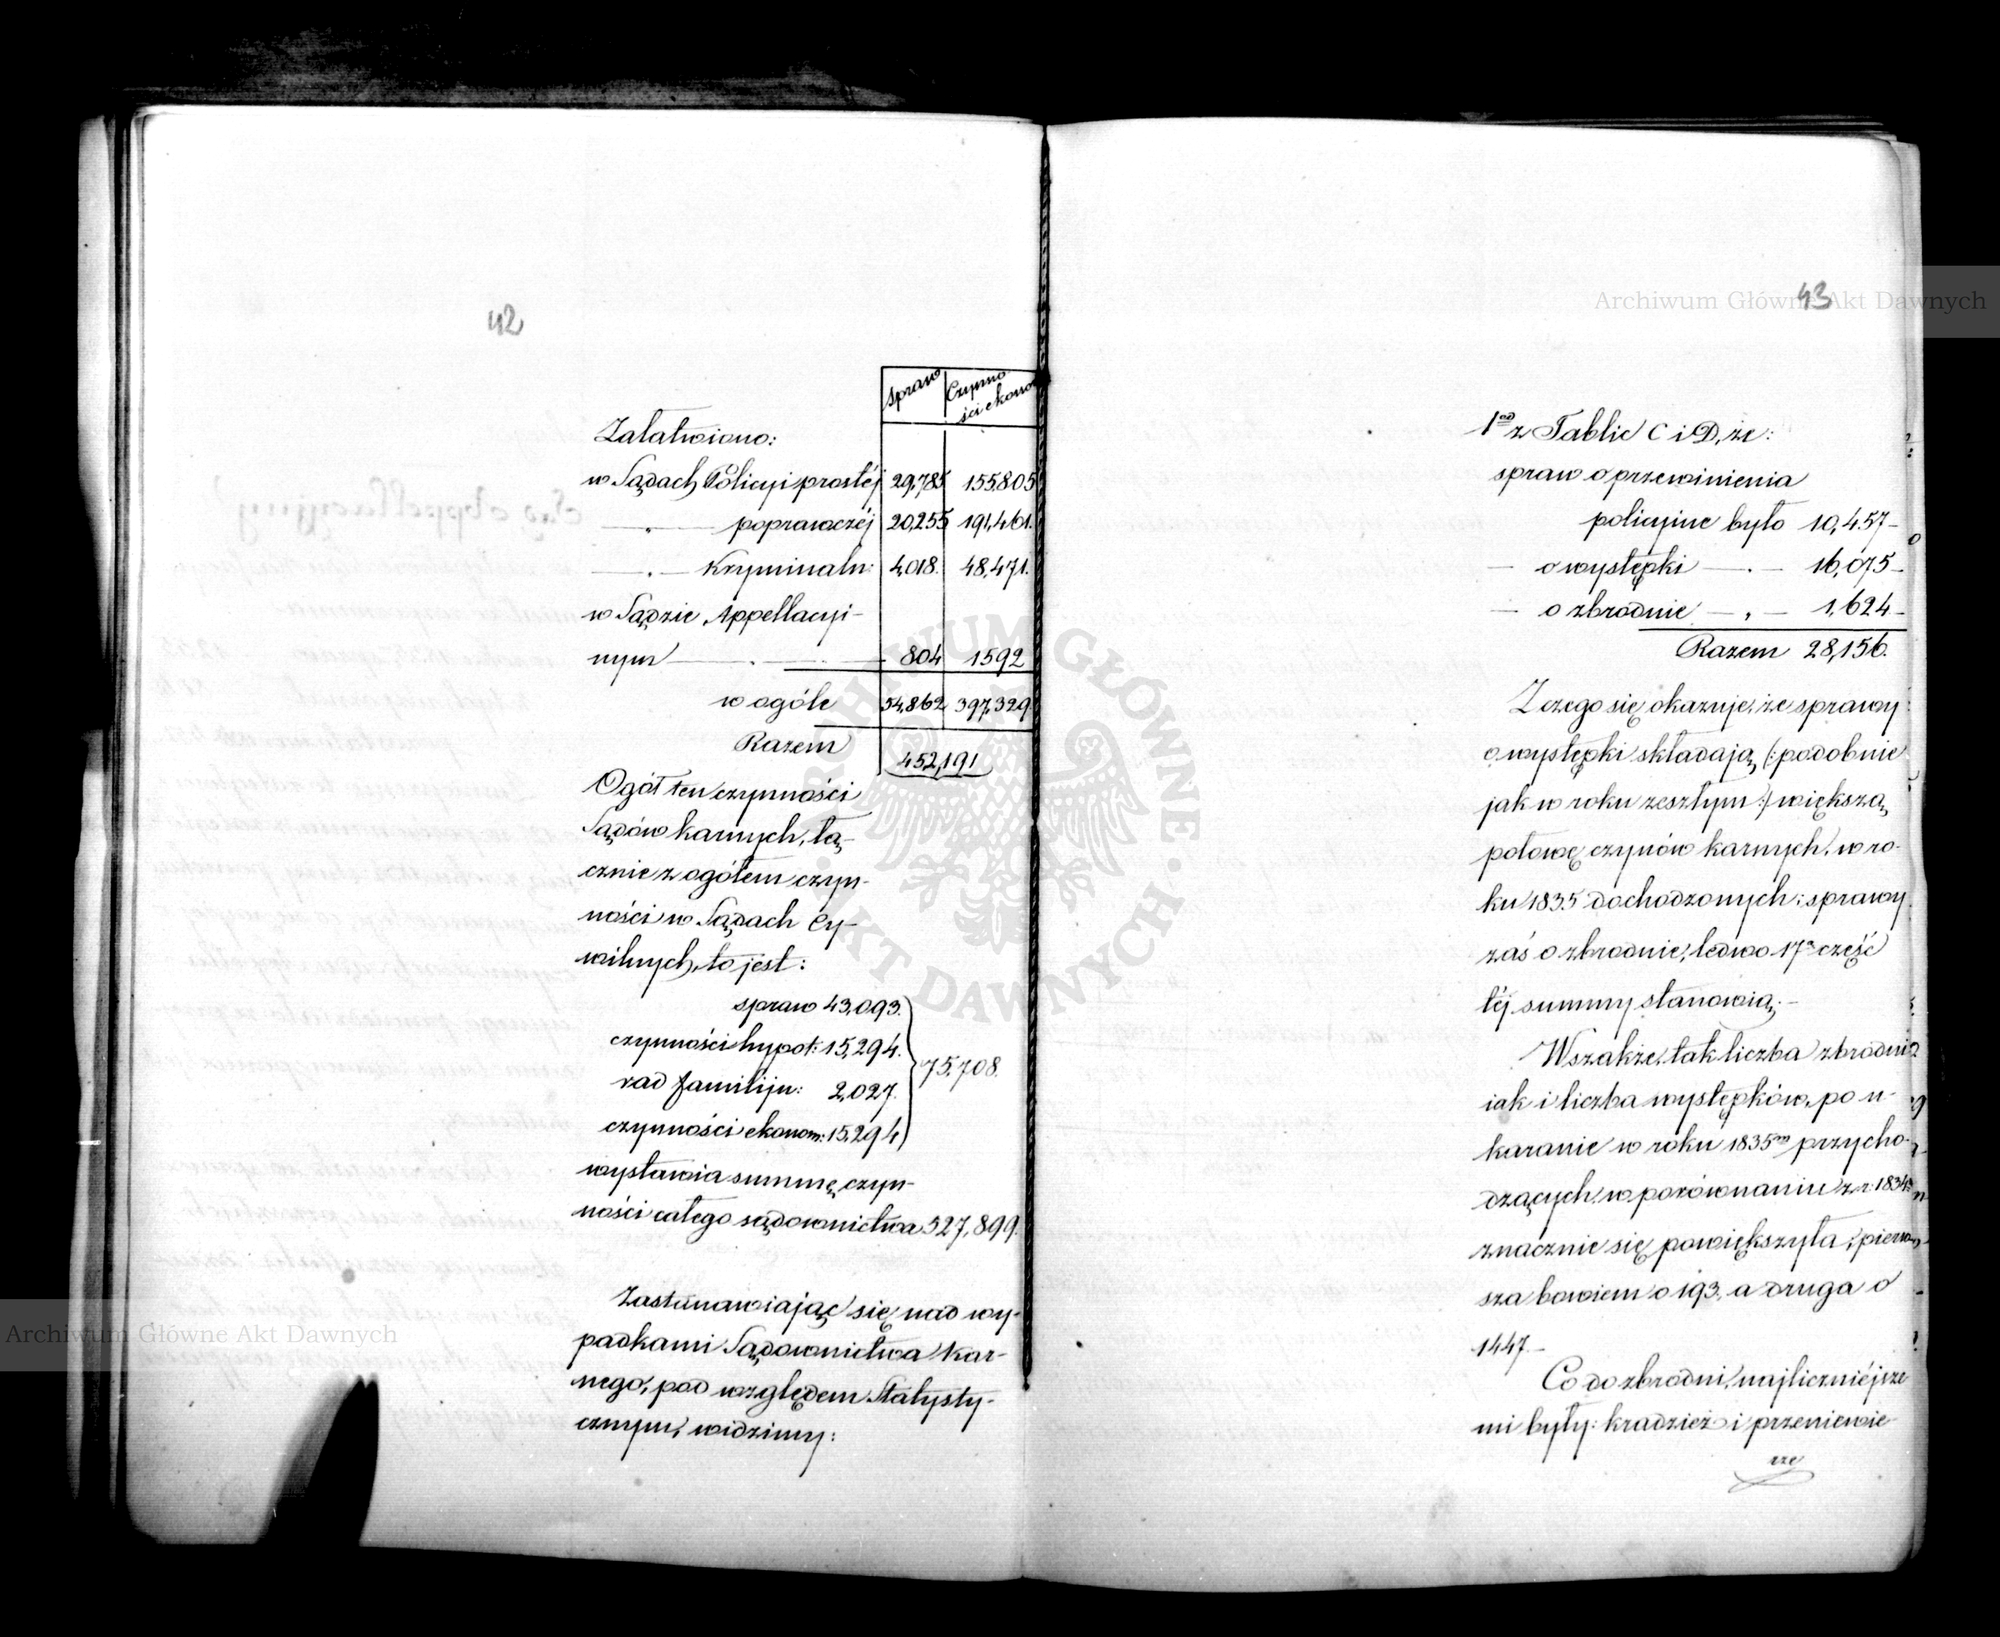 42
Spraw Czynno-
ści ekono
Załatwiono:
w Sądach Policyi prostéj 29,785 155,805
— „ — poprawczéj 20,255 191,461.
— „ — Kryminaln: 4,018. 48,471.
w Sądzie Appellacyi-
nym — . — 804 1592
w ogóle 54,862 397,329
Razem 452,191
Ogół ten czynności
Sądów karnych, łą-
cznie z ogółem czyn-
ności w Sądach Cy-
wilnych, to jest:
spraw 43,093.
czynności hypot: 15,294.
rad familijn: 2,027.
czynności ekonom: 15,294
75,708.
wystawia summę czyn-
ności całego sądownictwa 527,899.
Zastanawiając się nad wy-
padkami Sądownictwa Kar-
nego, pod względem Statysty-
cznym, widzimy:
43
1od z Tablic C i D, że:
spraw o przewinienia
policyine było 10,457—
— o występki — . — 16,075—
— o zbrodnie — „ — 1,624—
Razem 28,156.
Z czego się okazuje, że sprawy
o występki składają (:podobnie
jak w roku zeszłym:) większą
połowę czynów karnych, w ro-
ku 1835 dochodzonych; sprawy
zaś o zbrodnie, ledwo 17ą część
téj summy stanowią.—
Wszakże, tak liczba zbrodni
iak i liczba występków, po u-
karanie w roku 1835m przycho-
dzących, w porównaniu z r: 1834m
znacznie się powiększyła; pierw-
sza bowiem o 193, a druga o
1447.—
Co do zbrodni, najliczniéjsze
mi były: kradzież i przeniewie
rze
Archiwum Główne Akt Dawnych
ARCHIWUM GŁÓWNE · AKT DAWNYCH ·
Archiwum Główne Akt Dawnych